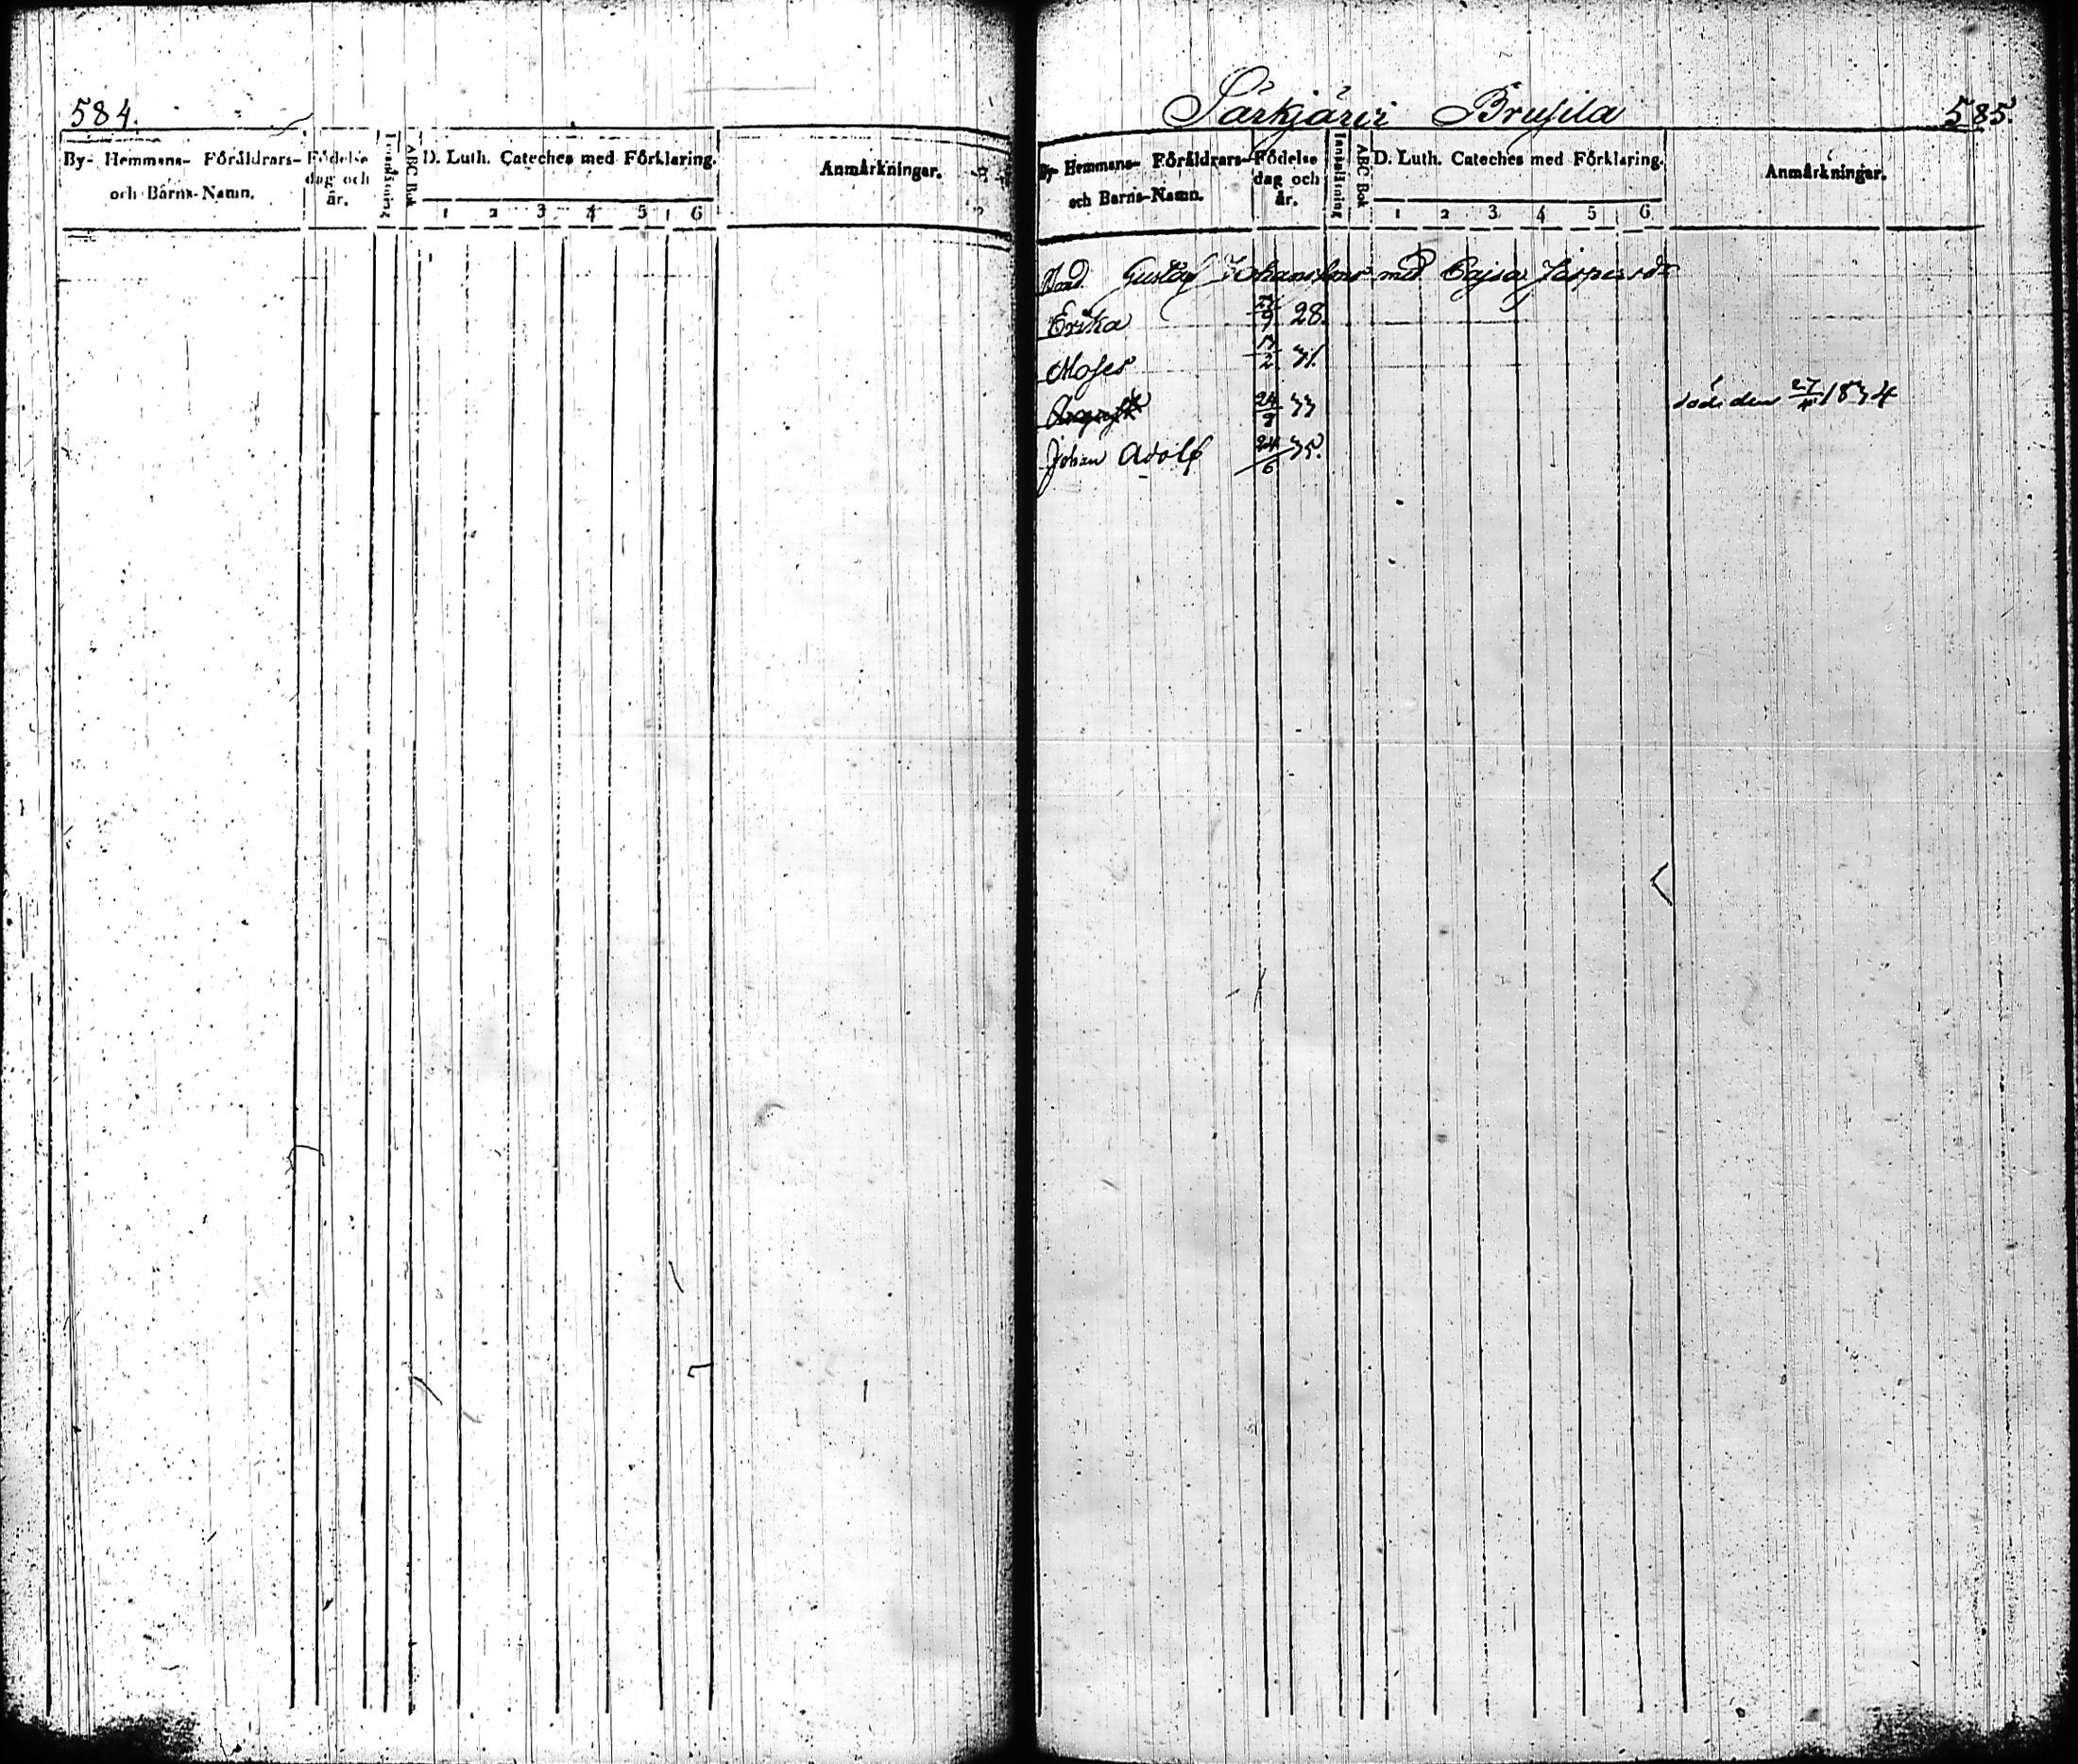 584.
By- Hemmans- Föräldrars-
och Barns-Namn.
Födelse
dag och
år.
Innanläsning
ABC Bok
D. Luth. Cateches med Förklaring.
1 2 3 4 5 6
Anmärkningar.
Särkjärvi Brusila
585.
By- Hemmans- Föräldrars-
och Barns-Namn.
Födelse
dag och
år.
Innanläsning
ABC Bok
D. Luth. Cateches med Förklaring.
1 2 3 4 5 6
Anmärkningar.
Gustaf Johansson med Cajsa Jaspersdr
Erika /9 28.
Moses /2 71.
24/ 73 död den 27/ 1874
Johan Adolf 24/6 75.